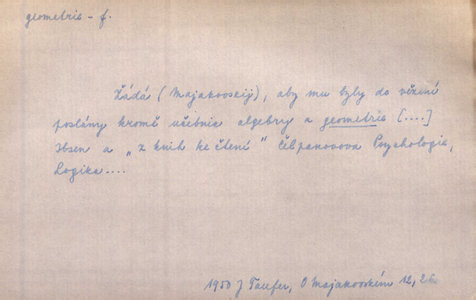 geometrie - f.
Žádá (Majakovskij), aby mu byly do vězení
poslány kromě učebnic algebry a geometrie [....]
Ibsen a „z knih ke čtení" Čelpanovova Psychologie,
Logika....
1950 J Taufer, O Majakovském 12,